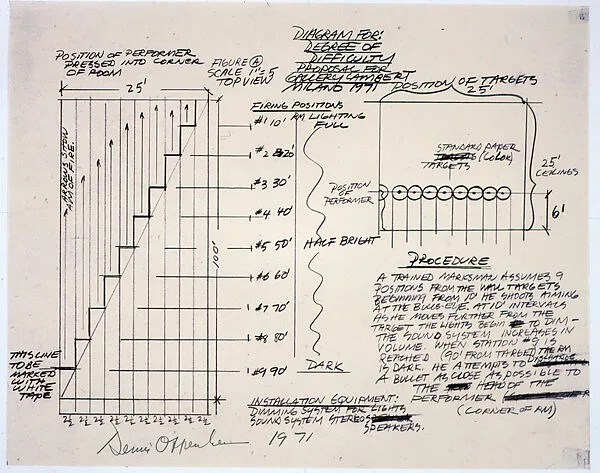 DIAGRAM FOR:
DEGREE OF
DIFFICULTY
PROPOSAL FOR
GALLERY LAMBERT
MILANO 1971
POSITION OF PERFORMER
PRESSED INTO CORNER
OF ROOM
FIGURE A
SCALE 1"=5
TOP VIEW
25'
ARROWS SHOW
AIM OF FIRE.
100'
THIS LINE
TO BE
MARKED
WITH
WHITE
TAPE
2½ 2½ 2½ 2½ 2½ 2½ 2½ 2½ 2½ 2½
FIRING POSITIONS
#1 10'
#2 20'
#3 30'
#4 40'
#5 50'
#6 60'
#7 70'
#8 80'
#9 90'
RM LIGHTING
FULL
HALF BRIGHT
DARK
POSITION OF TARGETS
25'
STANDARD PAPER
(COLOR)
TARGETS
POSITION
OF
PERFORMER
25'
CEILINGS
6'
PROCEDURE
A TRAINED MARKSMAN ASSUMES 9
POSITIONS FROM THE WALL TARGETS
BEGINNING FROM 10' HE SHOOTS AIMING
AT THE BULLS-EYE. AT 10' INTERVALS
AS HE MOVES FURTHER FROM THE
TARGET THE LIGHTS BEGIN TO DIM -
THE SOUND SYSTEM INCREASES IN
VOLUME. WHEN STATION #9 IS
REACHED (90' FROM TARGET) THE RM
IS DARK. HE ATTEMPTS TO DISCHARGE
A BULLET AS CLOSE AS POSSIBLE TO
THE HEAD OF THE
PERFORMER
(CORNER OF RM)
INSTALLATION EQUIPMENT:
DIMMING SYSTEM FOR LIGHTS
SOUND SYSTEM STEREO
SPEAKERS.
Dennis Oppenheim 1971